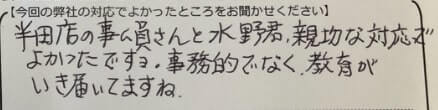 【今回の弊社の対応でよかったところをお聞かせください】
半田店の事ム員さんと水野君、親切な対応で
よかったですヨ。事務的でなく、教育が
いき届いてますね。